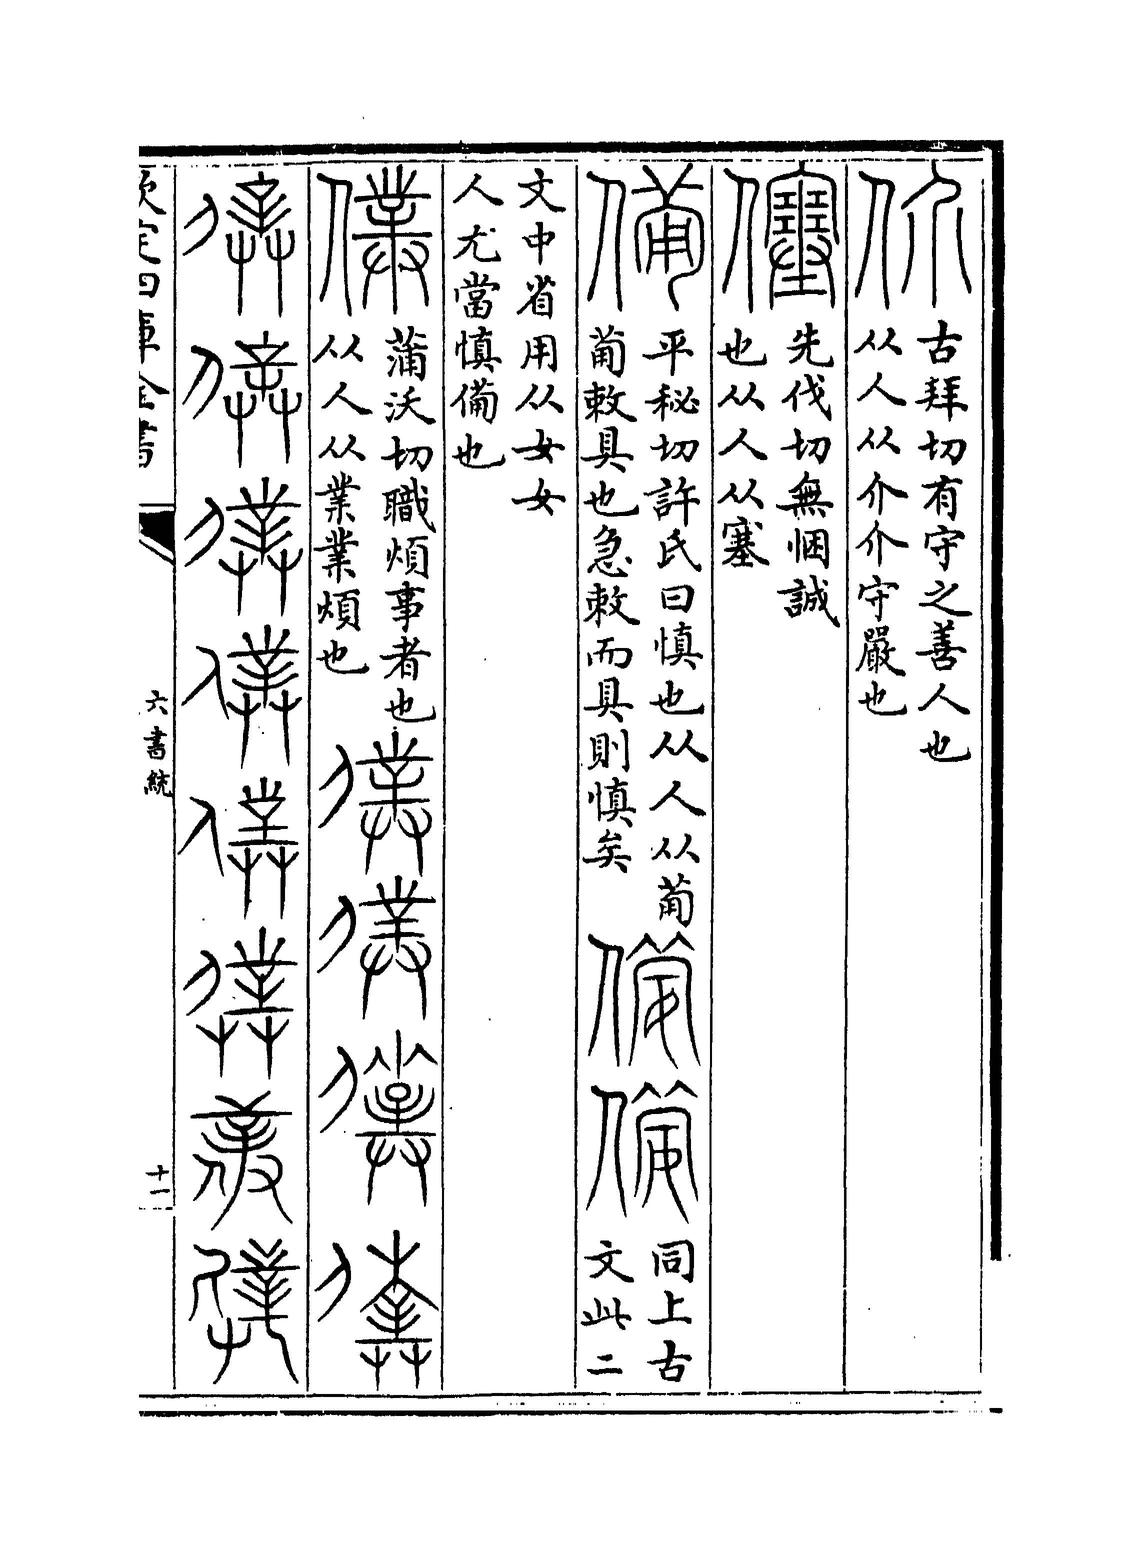 价
古拜切有守之善人也
从人从介介守嚴也
僿
先伐切無悃誠
也从人从塞
備
平秘切許氏曰慎也从人从葡
葡敕具也急敕而具則慎矣
同上古
文此二
文中省用从女女
人尤當慎備也
僕
蒲沃切職煩事者也
从人从業業煩也
欽定四庫全書
六書統
十一